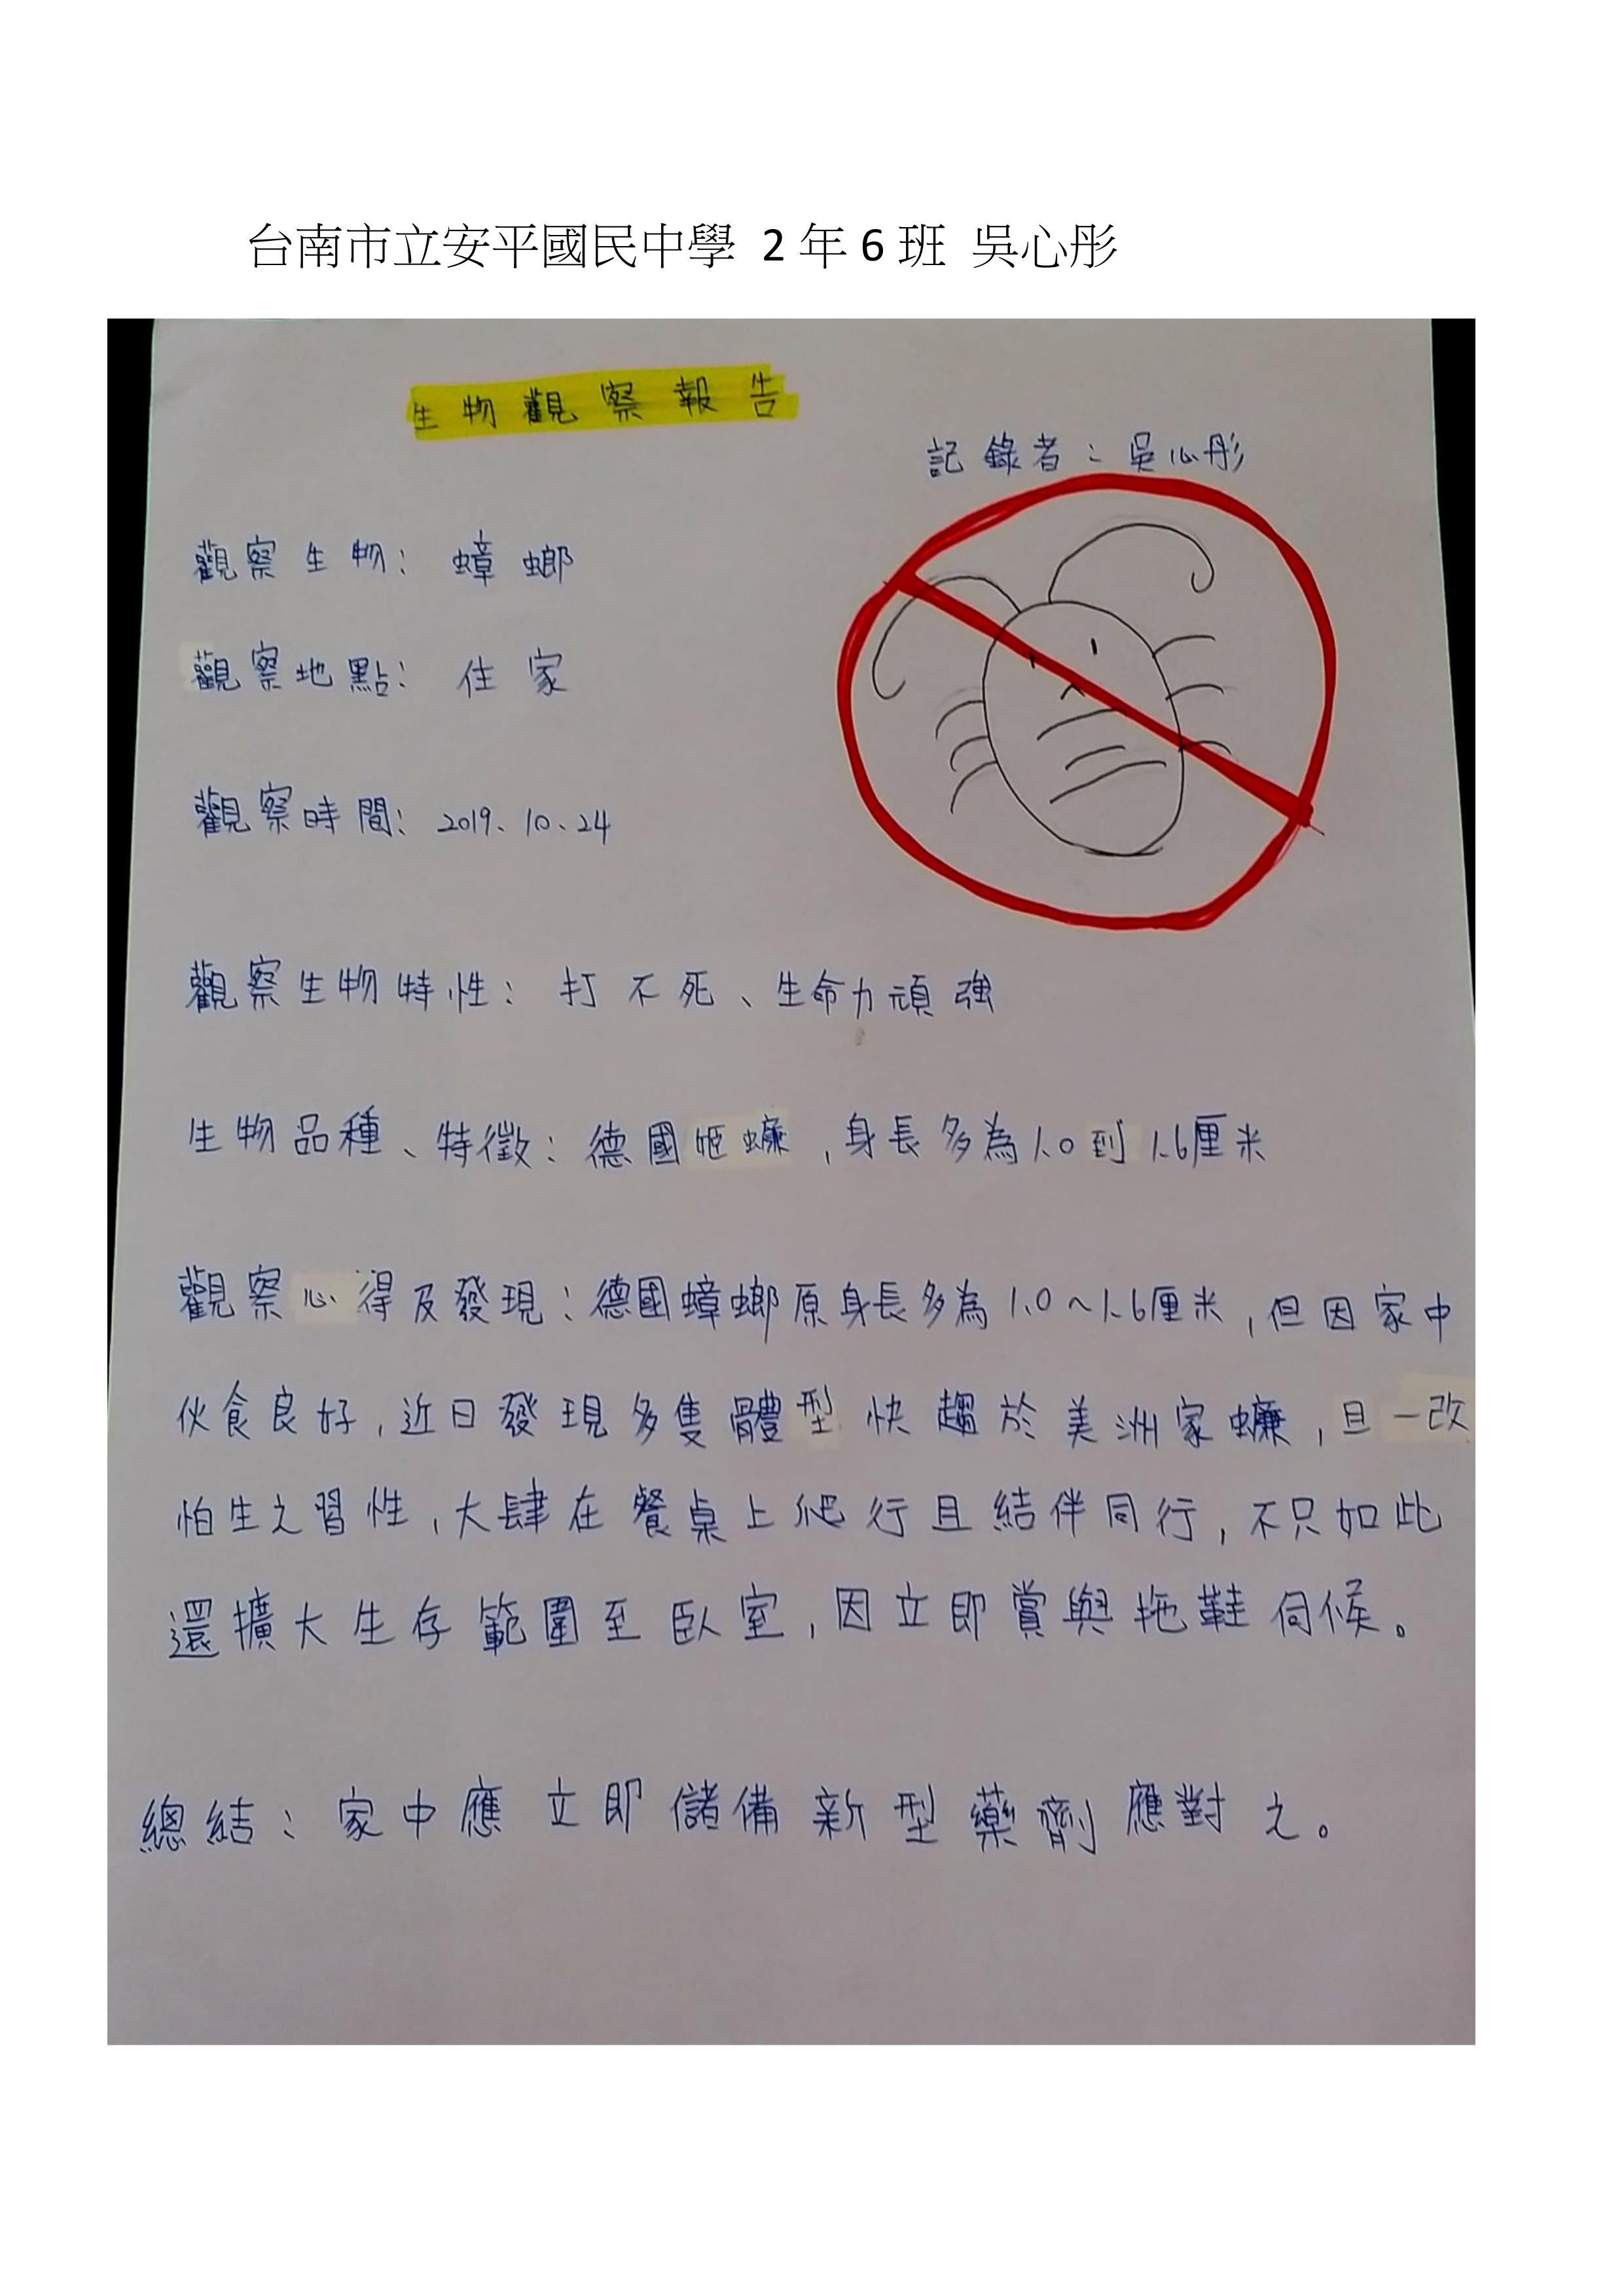 台南市立安平國民中學 2 年 6 班 吳心彤
生物觀察報告
記錄者：吳心彤
觀察生物：蟑螂
觀察地點：住家
觀察時間：2019、10、24
觀察生物特性：打不死、生命力頑強
生物品種、特徵：德國姬蠊，身長多為1.0到1.6厘米
觀察心得及發現：德國蟑螂原身長多為1.0～1.6厘米，但因家中
伙食良好，近日發現多隻體型快趨於美洲家蠊，且一改
怕生之習性，大肆在餐桌上爬行且結伴同行，不只如此
還擴大生存範圍至臥室，因立即賞與拖鞋伺候。
總結：家中應立即儲備新型藥劑應對之。